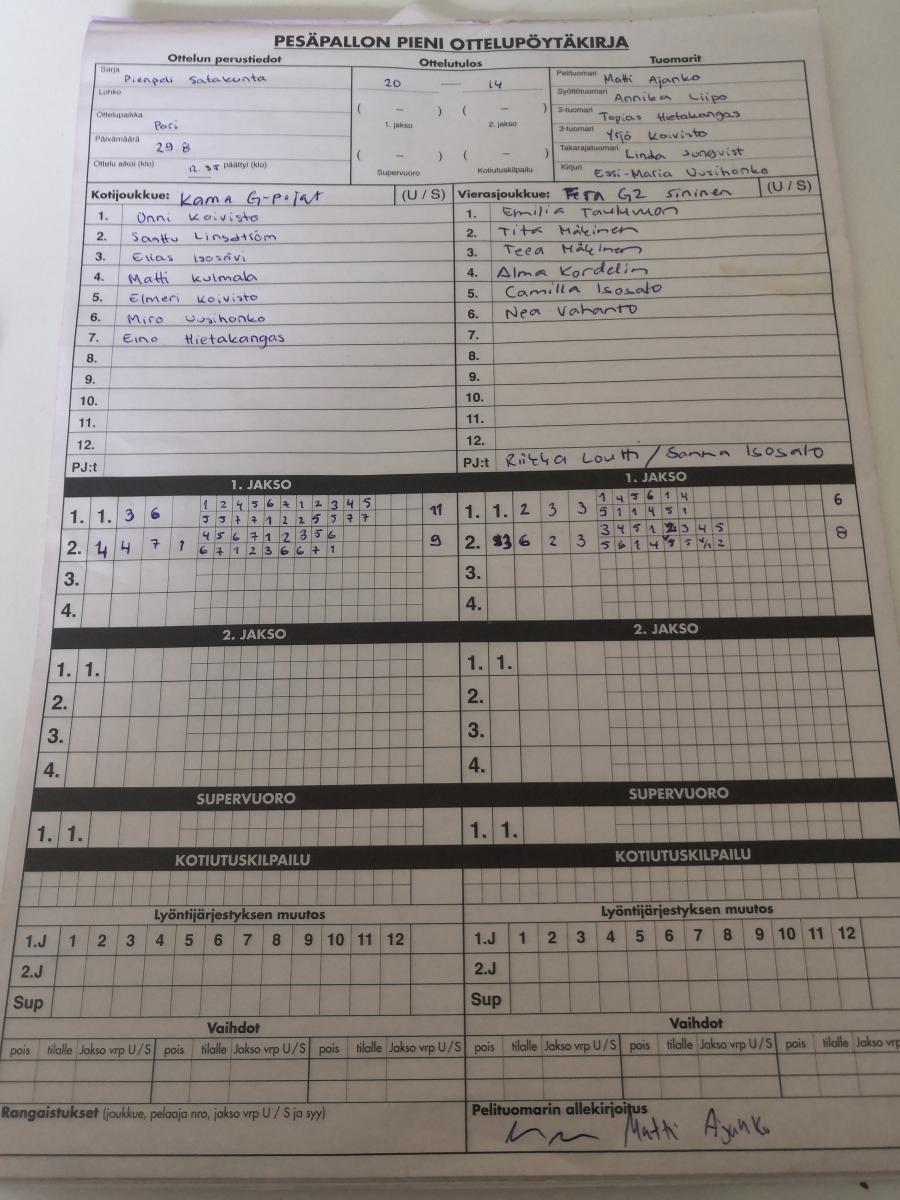 PESÄPALLON PIENI OTTELUPÖYTÄKIRJA
Ottelun perustiedot
Sarja Pienpeli Satakunta
Lohko
Ottelupaikka Pori
Päivämäärä 29.8
Ottelu alkoi (klo) 12.35 päättyi (klo)
Ottelutulos
20 — 14
( – ) ( – )
1. jakso 2. jakso
( – ) ( – )
Supervuoro Kotiutuskilpailu
Tuomarit
Pelituomari Matti Ajanko
Syöttötuomari Annika Liipo
2-tuomari Topias Hietakangas
3-tuomari Yrjö Koivisto
Takarajatuomari Linda Junqvist
Kirjuri Essi-Maria Uusihonko
Kotijoukkue: Kama G-pojat (U / S)
1. Onni Koivisto
2. Santtu Lingström
3. Elias Isosävi
4. Matti Kulmala
5. Elmeri Koivisto
6. Miro Uusihonko
7. Eino Hietakangas
8.
9.
10.
11.
12.
PJ:t
Vierasjoukkue: Fera G2 sininen (U / S)
1. Emilia
2. Tita Mäkinen
3. Teea Mäkinen
4. Alma Kordelin
5. Camilla Isosalo
6. Nea Vahanto
7.
8.
9.
10.
11.
12.
PJ:t Riikka Loutti / Sanna Isosalo
1. JAKSO
1. 1. 3 6 1 2 4 5 6 7 1 2 3 4 5 11
5 5 7 7 1 2 2 5 5 7 7
2. 1 4 7 1 4 5 6 7 1 2 3 5 6 9
6 7 1 2 3 6 6 7 1
3.
4.
1. JAKSO
1. 1. 2 3 3 1 4 5 6 1 4 6
5 1 1 4 5 1
2. 6 2 3 3 4 5 1 2 3 4 5 8
5 6 1 4 5 2
3.
4.
2. JAKSO
1. 1.
2.
3.
4.
2. JAKSO
1. 1.
2.
3.
4.
SUPERVUORO
1. 1.
SUPERVUORO
1. 1.
KOTIUTUSKILPAILU
KOTIUTUSKILPAILU
Lyöntijärjestyksen muutos
1.J 1 2 3 4 5 6 7 8 9 10 11 12
2.J
Sup
Lyöntijärjestyksen muutos
1.J 1 2 3 4 5 6 7 8 9 10 11 12
2.J
Sup
Vaihdot
pois tilalle Jakso vrp U / S pois tilalle Jakso vrp U / S pois tilalle Jakso vrp U / S
Vaihdot
pois tilalle Jakso vrp U / S pois tilalle Jakso vrp U / S pois tilalle Jakso vrp
Rangaistukset (joukkue, pelaaja nro, jakso vrp U / S ja syy)
Pelituomarin allekirjoitus
Matti Ajanko